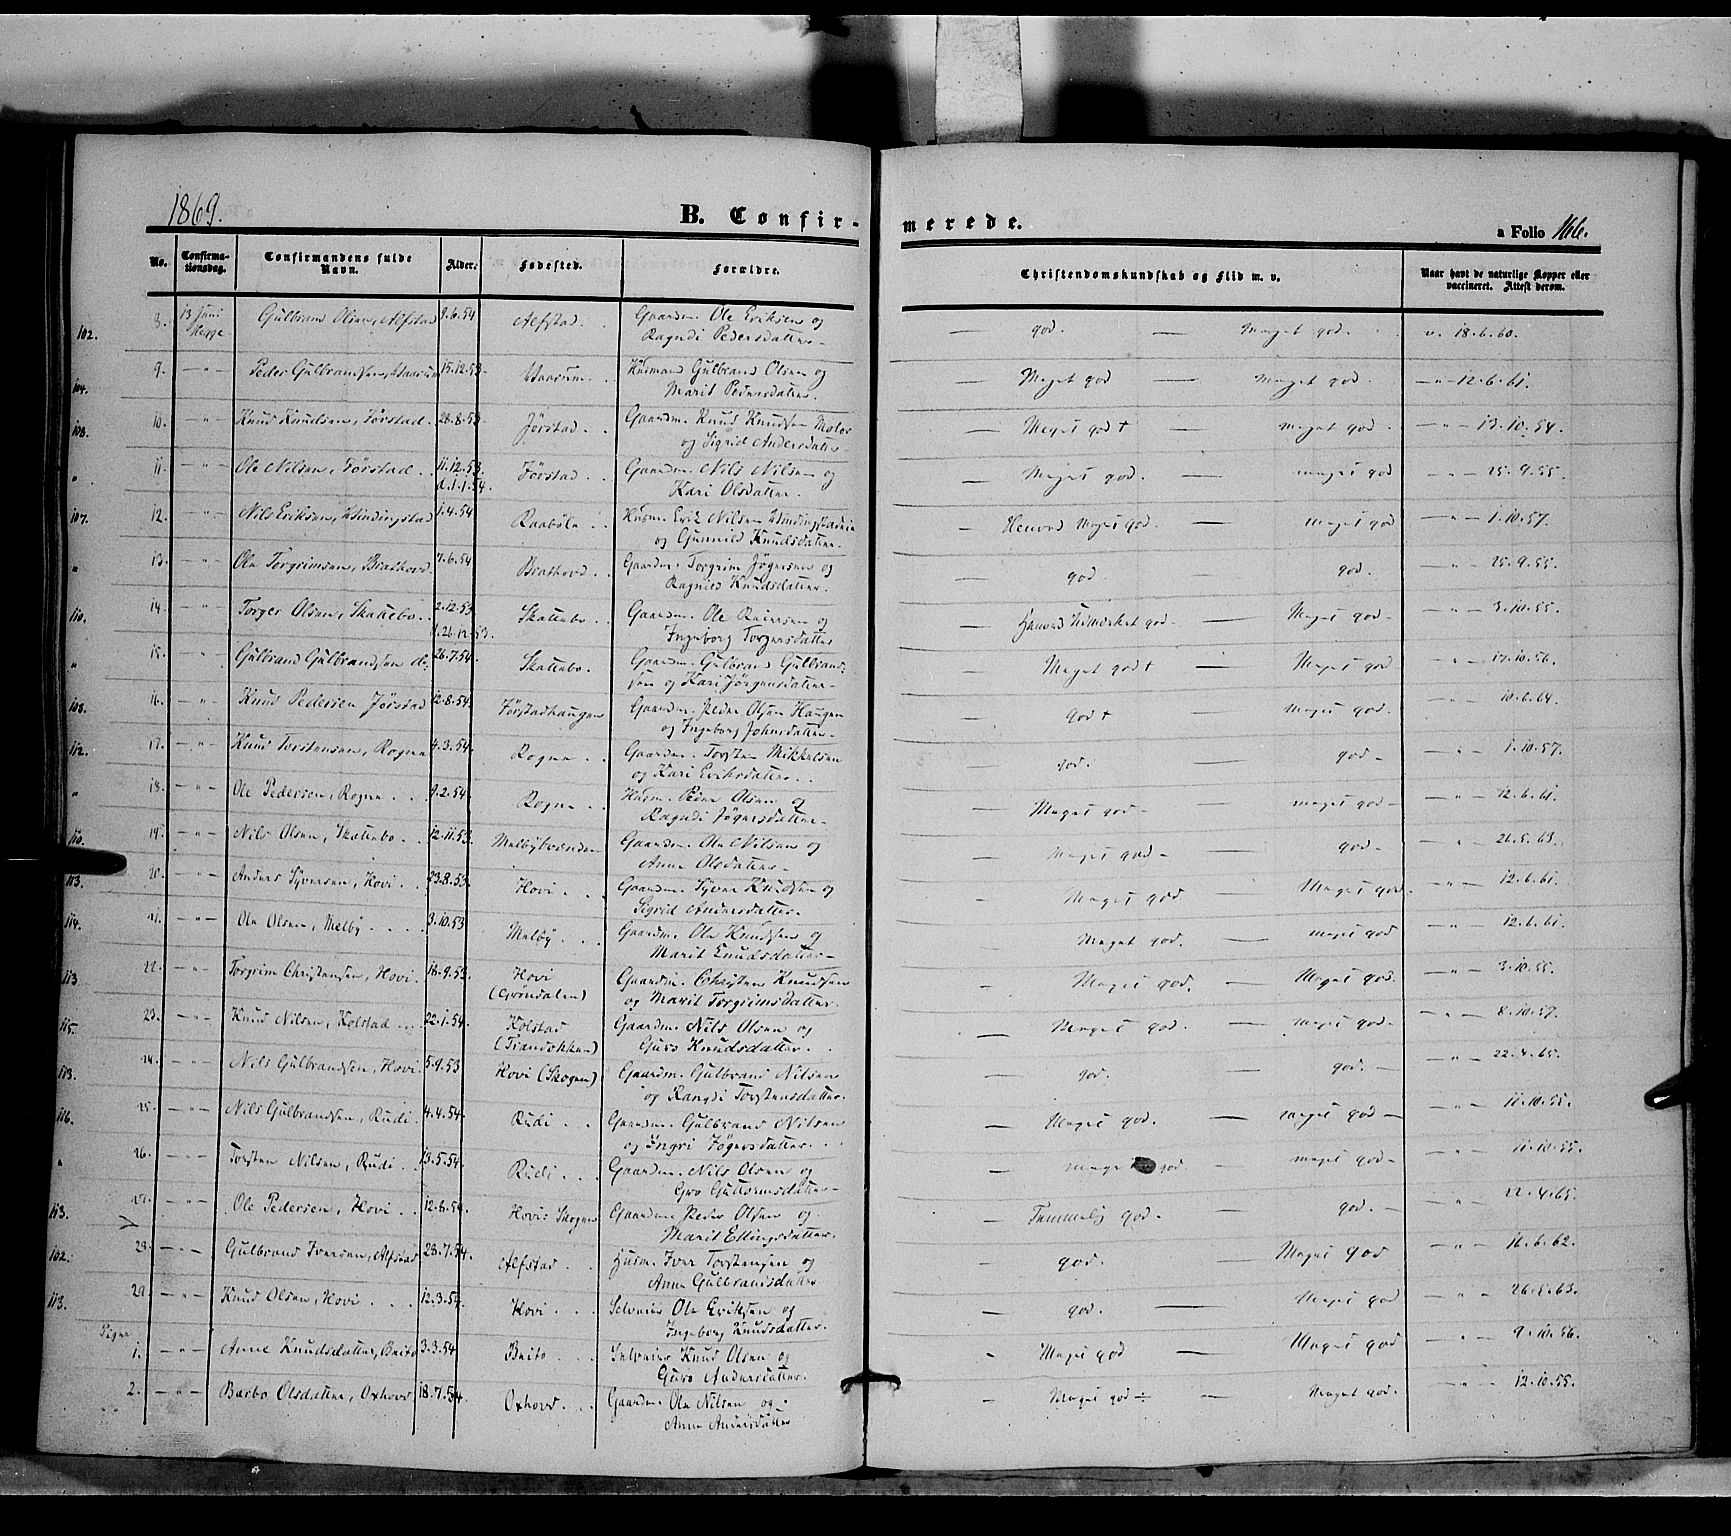 1869.
B. Confir-
merede.
a Folio 166.
No. Confirma-tionsdag. Confirmandens fulde Navn. Alder. Fødested. Forældre. Christendomskundskab og Flid m. v. Naar havt de naturlige Kopper eller vaccineret. Attest derom.
102. 8. 13 Juni Hegge Gulbrand Olsen, Alfstad 9.6.54 Alfstad. Gaardm. Ole Eriksen og Ragndi Pedersdatter. — god. — Meget god. v. 18.6.60.
104. 9. — " — Peder Gulbrandsen, 15.12.53 Husmand Gulbrand Olsen og Marit Pedersdatter. — Meget god — meget god. — " — 12.6.61.
108. 10. — " — Knud Knudsen, Jørstad. 28.8.53 Jørstad. Gaardm. Knud Knudsen og Sigrid Andersdatter — Meget god + — meget god. — " — 13.10.54.
" 11. — " — Ole Nilsen, Jørstad. 11.12.53. d. 1.1.54. Jørstad. Gaardm. Nils Nilsen og Kari Olsdatter. — Meget god. — meget god — " — 25.9.55.
107. 12. — " — Nils Eriksen, Windingstad 1.4.54 Raabøle Husm. Erik Nilsen og Gunnild Knudsdatter. — Henved Meget god. — meget god — " — 1.10.57.
" 13. — " — Ole Torgrimsen, Brathovd. 7.6.54 Brathovd. Gaardm. Torgrim Jøgersen og Ragnild Knudsdatter. — god. — god. — " — 25.9.55.
110. 14. — " — Torger Olsen, Skattebo. 2.12.53 d. 26.12.53. Skattebo. Gaardm. Ole og Ingeborg Torgersdatter — Henved Udmærket god. — Meget god. — " — 3.10.55.
" 15. — " — Gulbrand Gulbrandsen do. 26.7.54. Skattebo. Gaardm. Gulbrand Gulbrandsen og Kari Jørgensdatter. — Meget god + — Meget god. — " — 17.10.56.
108. 16. — " — Knud Pedersen Jørstad 12.8.54. Jørstadhaugen Gaardm. Peder Olsen Haugen og Ingeborg Johnsdatter. — god + — Meget god. — " — 10.6.64.
112. 17. — " — Knud Torstensen, Rogne 4.3.54. Rogne Gaardm. Torsten Mikkelsen og Kari Eriksdatter. — god. — god — " — 1.10.57.
" 18. — " — Ole Pedersen, Rogne 9.2.54. Rogne Husm. Peder Olsen og Ragndi Jøgersdatter. — Meget god — meget god — " — 12.6.61.
110. 19. — " — Nils Olsen, Skattebo. 12.11.53. Gaardm. Ole Nilsen og Anne Olsdatter. — Meget god — god — " — 26.5.63.
113. 20. — " — Anders Syversen, Hovi. 23.8.53 Hovi. Gaardm. Syver Knudsen og Sigrid Andersdatter. — Meget god. — Meget god. — " — 12.6.61.
114. 21. — " — Ole Olsen, Melby 3.10.53 Melby Gaardm. Ole Knudsen og Marit Knudsdatter. — Meget god. — meget god — " — 12.6.61.
113 22. — " — Torgrim Christensen, Hovi. 18.9.53. Hovi (Grøndalen) Gaardm. Christen Knudsen og Marit Torgrimsdatter. — Meget god. — Meget god. — " — 3.10.55.
115. 23. — " — Knud Nilsen, Kolstad 22.1.54. Kolstad Gaardm. Nils Olsen og Guro Knudsdatter. — Meget god. — meget god. — " — 8.10.57.
113. 24. — " — Nils Gulbrandsen, Hovi. 5.9.53 Hovi (Skogen) Gaardm. Gulbrand Nilsen og Rangdi Torstensdatter. — god. — god. — " — 22.4.65.
116. 25. — " — Nils Gulbrandsen, Rudi. 4.4.54. Rudi Gaardm. Gulbrand Nilsen og Ingri Jøgersdatter. — Meget god. — meget god — " — 11.10.55.
" 26. — " — Torsten Nilsen, Rudi. 13.5.54. Rudi. Gaardm. Nils Olsen og Gro Guttormsdatter — meget god. — meget god — " — 11.10.55.
113. 27. — " — Ole Pedersen, Hovi. 12.6.54. Hovi: Skogen Gaardm. Peder Olsen og Marit Ellingsdatter. — Temmelig god. — god. — " — 22.4.65.
102. 28. — " — Gulbrand Iversen, Alfstad 23.7.54. Alfstad Husm. Iver Torstensen og Anne Gulbrandsdatter — god. — Meget god — " — 16.6.62.
113. 29. — " — Knud Olsen, Hovi 12.3.54. Hovi. Selveier Ole Eriksen og Ingeborg Knudsdatter. — god. — Meget god — " — 26.5.63.
Piger
1. — " — Anne Knudsdatter, Beito 3.3.54 Beito Selveier Knud Olsen og Guro Andersdatter. — Meget god — Meget god — " — 9.10.56.
2. — " — Barbo Olsdatter, Oxhovd 18.7.54 Oxhovd. Gaardm. Ole Nilsen og Anne Andersdatter — Meget god ÷ — Meget god. — " — 12.10.55.